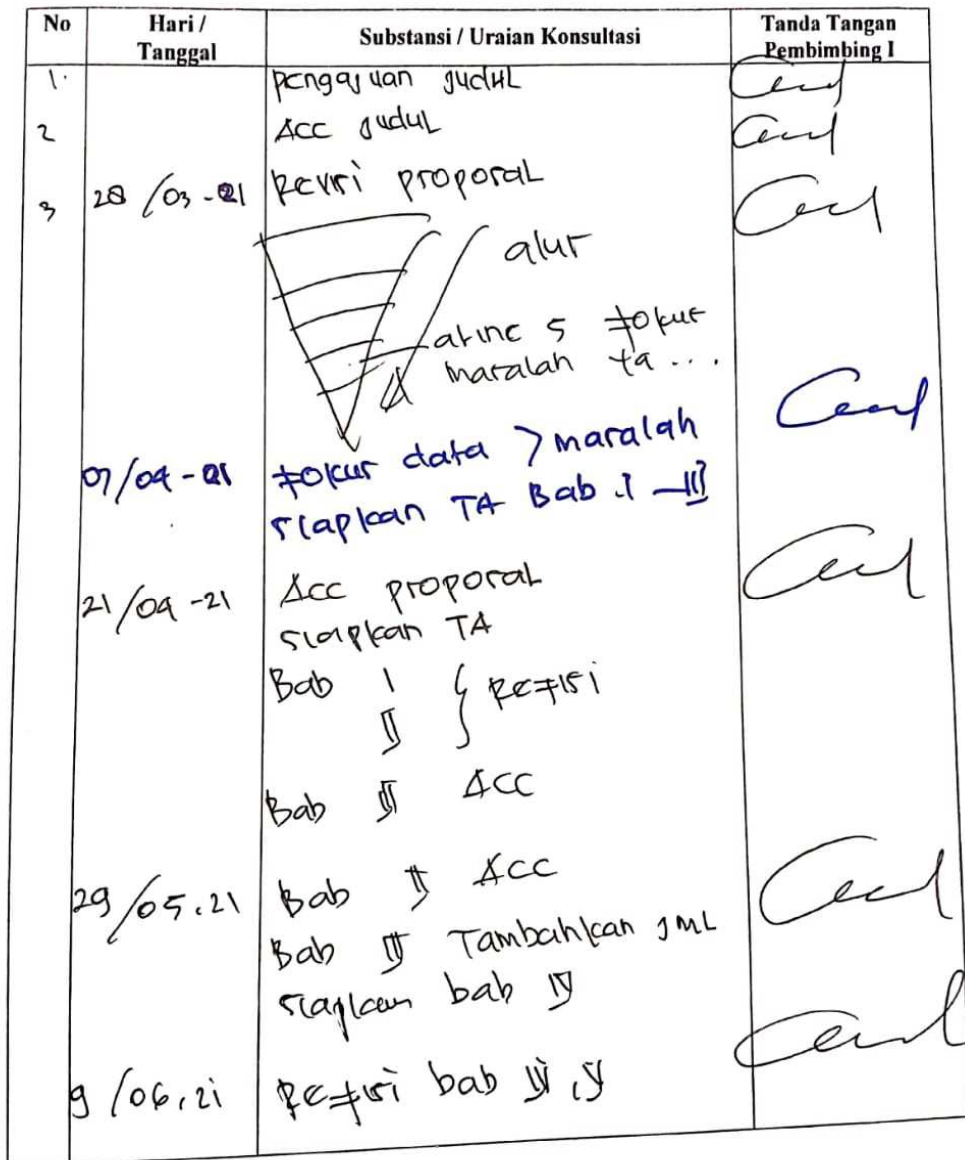 No Hari / Tanggal Substansi / Uraian Konsultasi Tanda Tangan Pembimbing I
1. Pengajuan Judul
2 Acc Judul
3 28/03-21 Revisi proposal
alur
5 Fokus
masalah ta...
07/04-21 Fokus data > masalah
siapkan TA Bab I - III
21/04-21 Acc proposal
siapkan TA
Bab I } Refisi
II
Bab Acc
29/05.21 Bab Acc
Bab Tambahkan JML
siapkan bab IV
9/06.21 Refisi bab IV, V